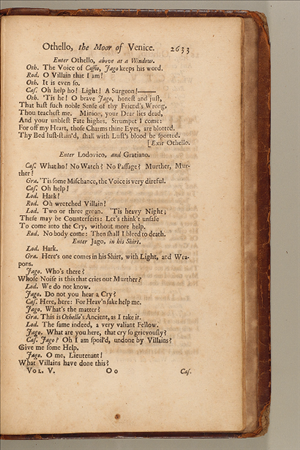 Othello, the Moor of Venice. 2633
Enter Othello, above at a Window.
Oth. The Voice of Cassio, Jago keeps his word.
Rod. O Villain that I am!
Oth. It is even so.
Cas. Oh help ho! Light! A Surgeon!——
Oth. 'Tis he! O brave Jago, honest and just,
That hast such noble Sense of thy Friend's Wrong,
Thou teachest me. Minion, your Dear lies dead,
And your unblest Fate highes. Strumpet I come:
For off my Heart, those Charms thine Eyes, are blotted.
Thy Bed lust-stain'd, shall with Lust's blood be spotted.
[Exit Othello.
Enter Lodovico, and Gratiano.
Cas. What ho! No Watch? No Passage? Murther, Mur-
ther!
Gra. 'Tis some Mischance, the Voice is very direful.
Cas. Oh help!
Lod. Hark!
Rod. Oh wretched Villain!
Lod. Two or three groan. 'Tis heavy Night;
These may be Counterfeits: Let's think't unsafe
To come into the Cry, without more help.
Rod. No body come? Then shall I bleed to death.
Enter Jago, in his Shirt.
Lod. Hark.
Gra. Here's one comes in his Shirt, with Light, and Wea-
pons.
Jago. Who's there?
Whose Noise is this that cries out Murther?
Lod. We do not know.
Jago. Do not you hear a Cry?
Cas. Here, here: For Heav'n sake help me.
Jago. What's the matter?
Gra. This is Othello's Ancient, as I take it.
Lod. The same indeed, a very valiant Fellow.
Jago. What are you here, that cry so grievously?
Cas. Jago? Oh I am spoil'd, undone by Villains!
Give me some Help.
Jago. O me, Lieutenant!
What Villains have done this?
VOL. V. O o Cas.